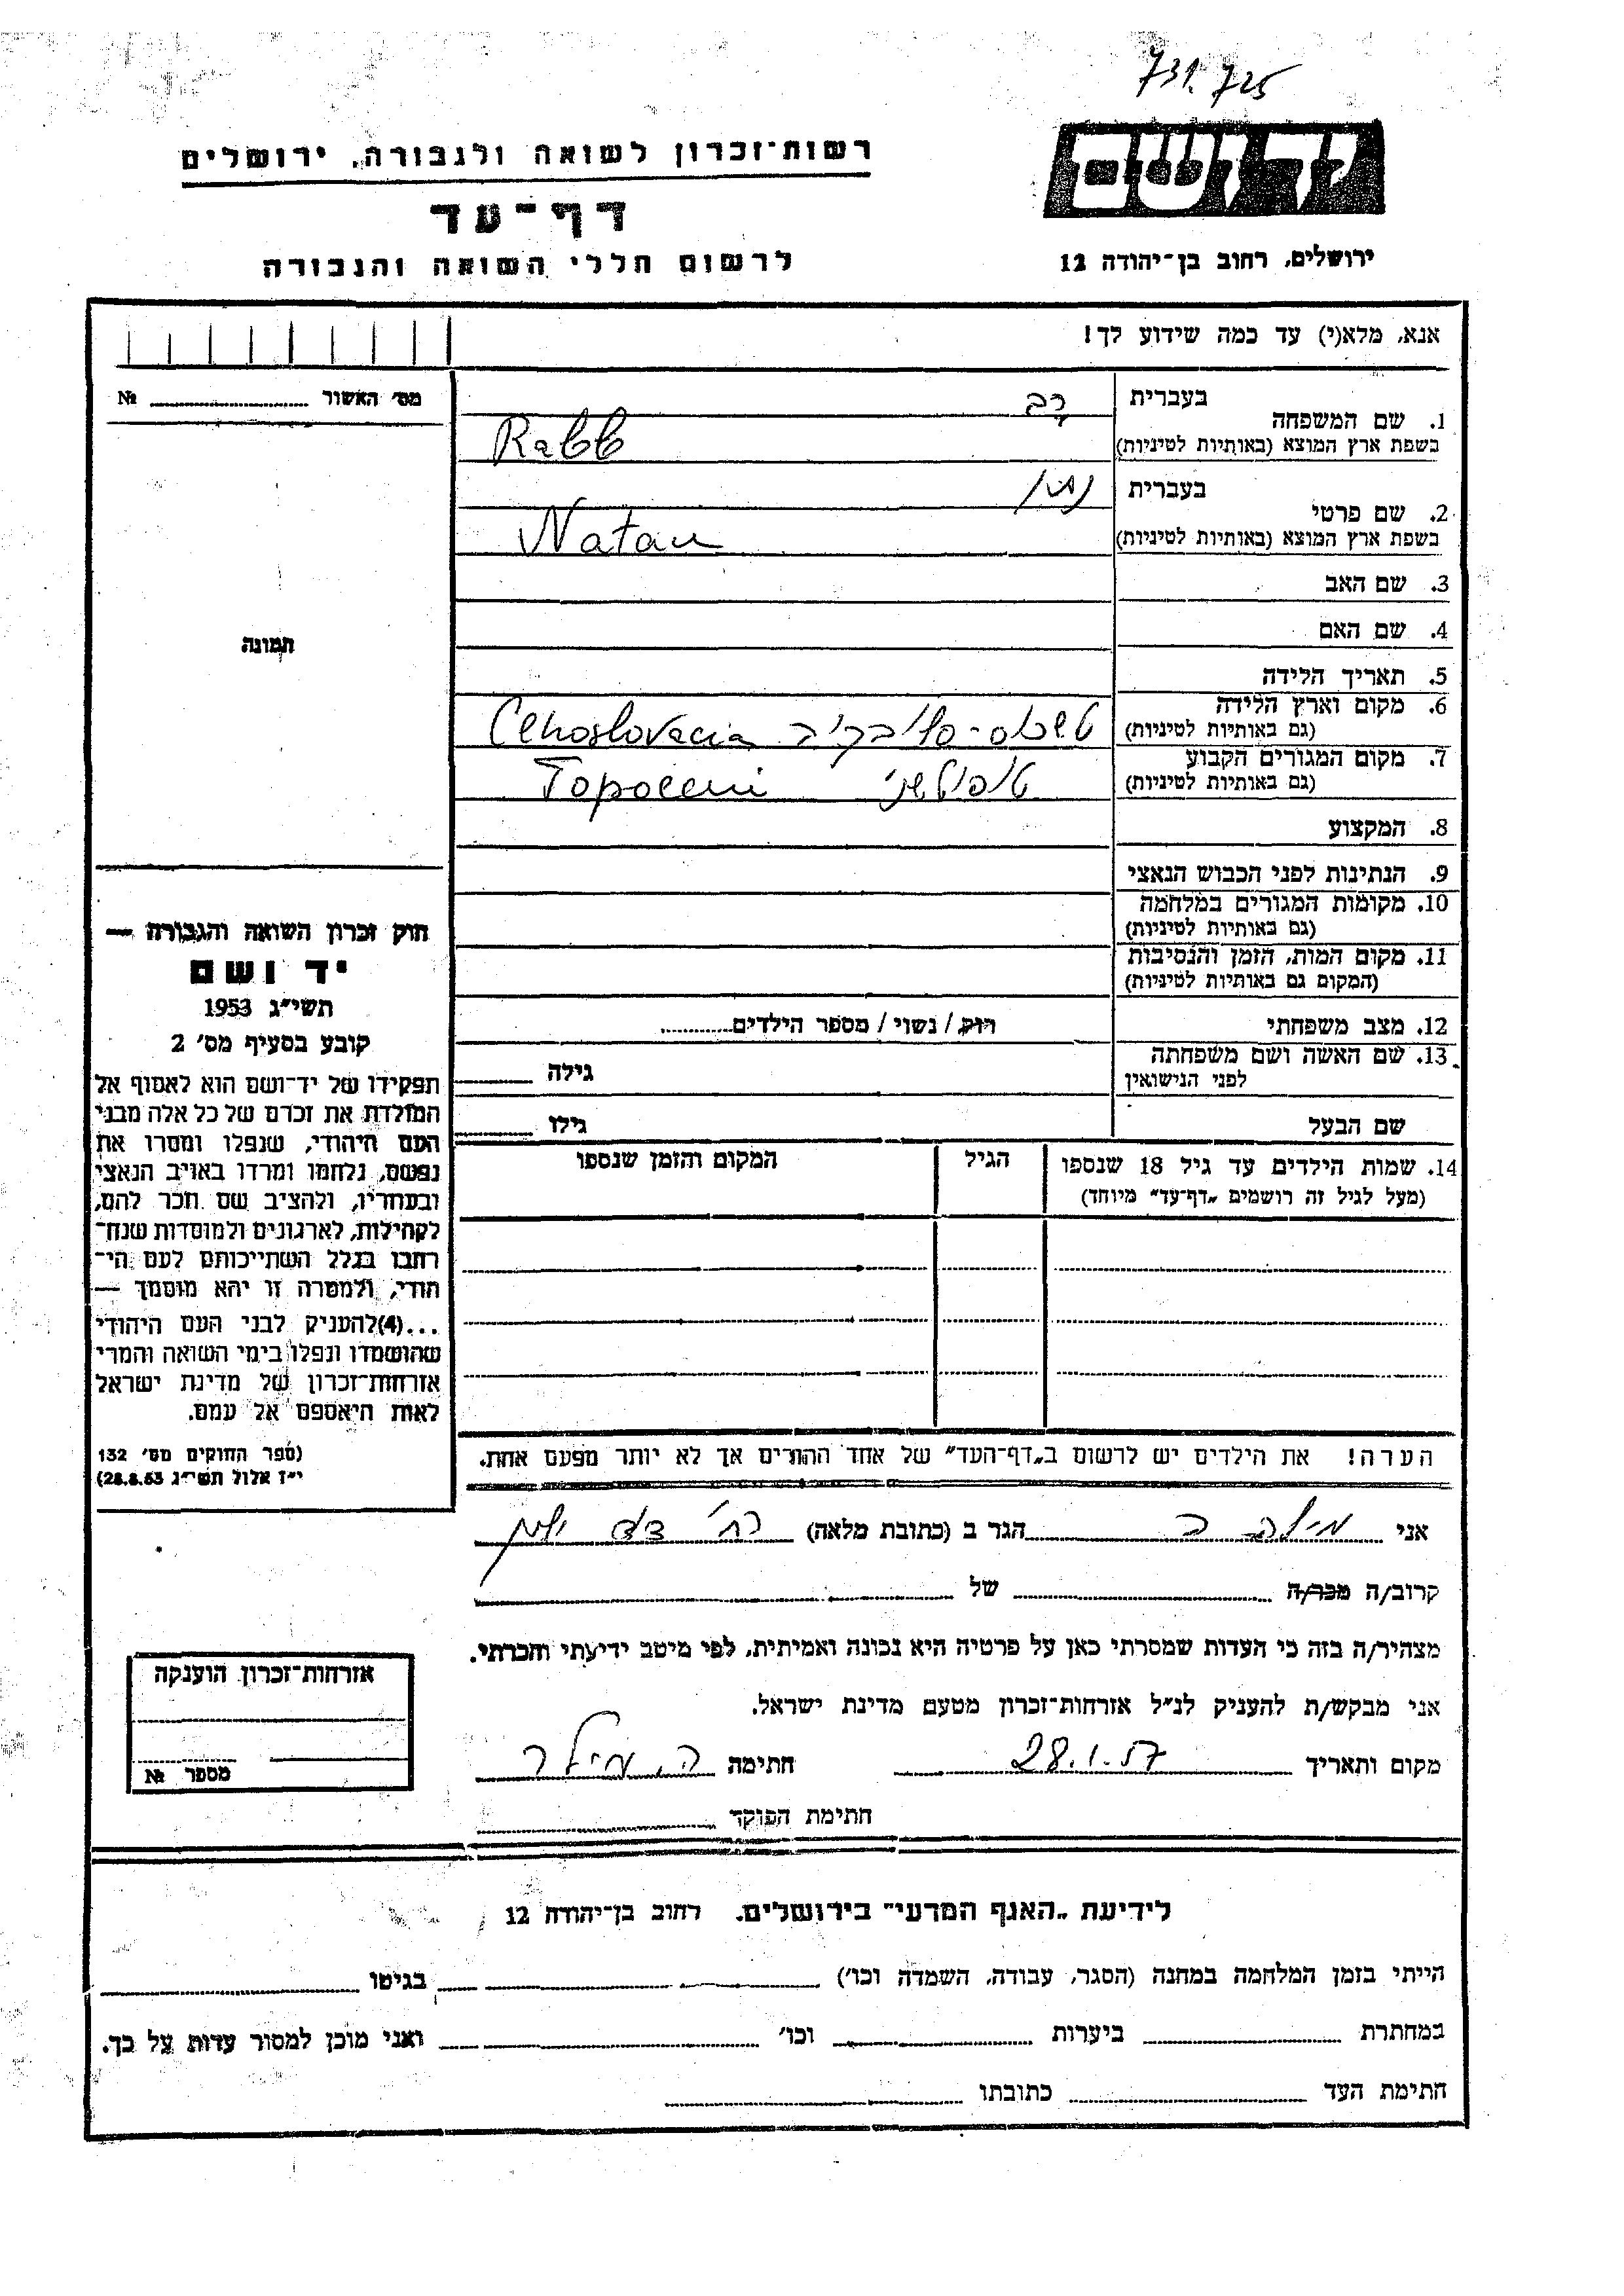 731.725
יד ושם
ירושלים, רחוב בן־יהודה 12
רשות־זכרון לשואה ולגבורה, ירושלים
דף־עד
לרשום חללי השואה והגבורה
אנא, מלא(י) עד כמה שידוע לך!
מס' האשור № 
1. שם המשפחה
בעברית רב
בשפת ארץ המוצא (באותיות לטיניות) Rabb
2. שם פרטי
בעברית נתן
בשפת ארץ המוצא (באותיות לטיניות) Natan
3. שם האב
4. שם האם
5. תאריך הלידה
6. מקום וארץ הלידה
(גם באותיות לטיניות) Cehoslovacia
7. מקום המגורים הקבוע
(גם באותיות לטיניות) Topoceni
8. המקצוע
9. הנתינות לפני הכבוש הנאצי
10. מקומות המגורים במלחמה
(גם באותיות לטיניות)
11. מקום המות, הזמן והנסיבות
(המקום גם באותיות לטיניות)
12. מצב משפחתי רוק / נשוי / מספר הילדים
13. שם האשה ושם משפחתה
לפני הנישואין
גילה
שם הבעל גילו
14. שמות הילדים עד גיל 18 שנספו
(מעל לגיל זה רושמים „דף־עד" מיוחד)
הגיל
המקום והזמן שנספו
הערה! את הילדים יש לרשום ב„דף־העד" של אחד ההורים אך לא יותר מפעם אחת.
תמונה
חוק זכרון השואה והגבורה —
יד ושם
תשי"ג 1953
קובע בסעיף מס' 2
תפקידו של יד־ושם הוא לאסוף אל
המולדת את זכרם של כל אלה מבני
העם היהודי, שנפלו ומסרו את
נפשם, נלחמו ומרדו באויב הנאצי
ובעוזריו, ולהציב שם וזכר להם,
לקהילות, לארגונים ולמוסדות שנח־
רבו בגלל השתייכותם לעם הי־
הודי, ולמטרה זו יהא מוסמך —
...(4) להעניק לבני העם היהודי
שהושמדו ונפלו בימי השואה והמרי
אזרחות־זכרון של מדינת ישראל
לאות היאספם אל עמם.
(ספר החוקים מס' 132
י"ז אלול תשי"ג 28.8.53)
אני מילר ה הגר ב (כתובת מלאה) רח'
קרוב/ה מכר/ה של
מצהיר/ה בזה כי העדות שמסרתי כאן על פרטיה היא נכונה ואמיתית, לפי מיטב ידיעתי והכרתי.
אני מבקש/ת להעניק לנ"ל אזרחות־זכרון מטעם מדינת ישראל.
מקום ותאריך 28.1.57 חתימה ה. מילר
חתימת הפוקד
אזרחות־זכרון הוענקה
מספר №
לידיעת „האגף המדעי" בירושלים, רחוב בן־יהודה 12
הייתי בזמן המלחמה במחנה (הסגר, עבודה, השמדה וכו') בגיטו
במחתרת ביערות וכו' ואני מוכן למסור עדות על כך.
חתימת העד כתובתו